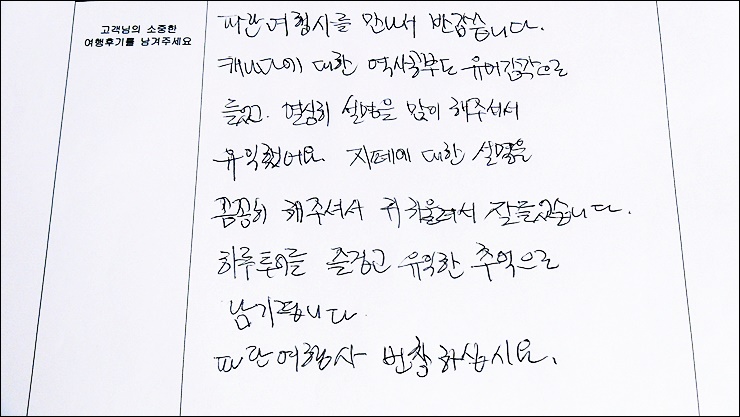 고객님의 소중한
여행후기를 남겨주세요
파란여행사를 만나서 반갑습니다.
캐나다에 대한 역사공부도 유머감각으로
들었고. 열심히 설명을 많이 해주셔서
유익했어요 지폐에 대한 설명을
꼼꼼히 해주셔서 귀 기울려서 잘들었습니다.
하루투어를 즐겁고 유익한 추억으로
남기렵니다
파란여행사 번창하십시요.